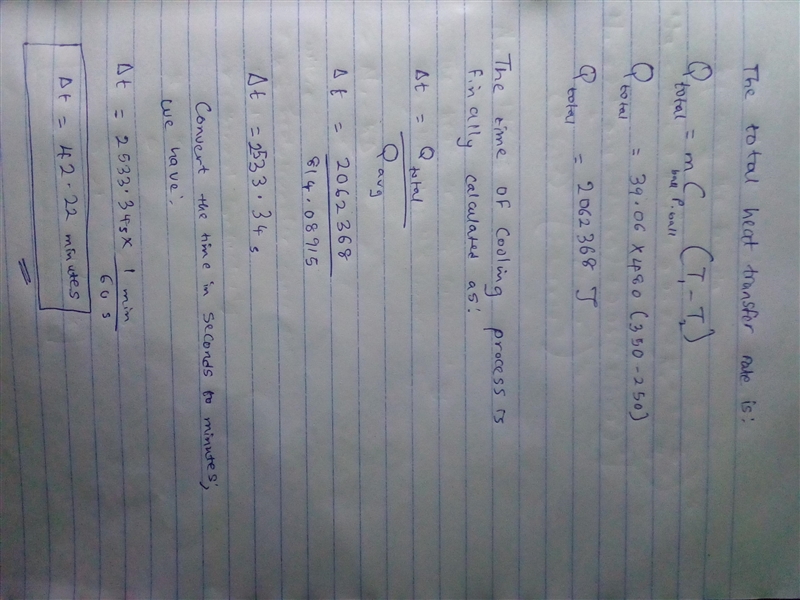 The total heat transfer rate is:
Q total = m ball C P, ball (T₁ - T₂)
Q total = 39.06 × 480 (350 - 250)
Q total = 2062368 J
The time of cooling process is
finally calculated as:
Δt = Q total / Q avg
Δt = 2062368 / 814.08915
Δt = 2533.34 s
Convert the time in seconds to minutes,
we have:
Δt = 2533.34s × 1 min / 60 s
Δt = 42.22 minutes